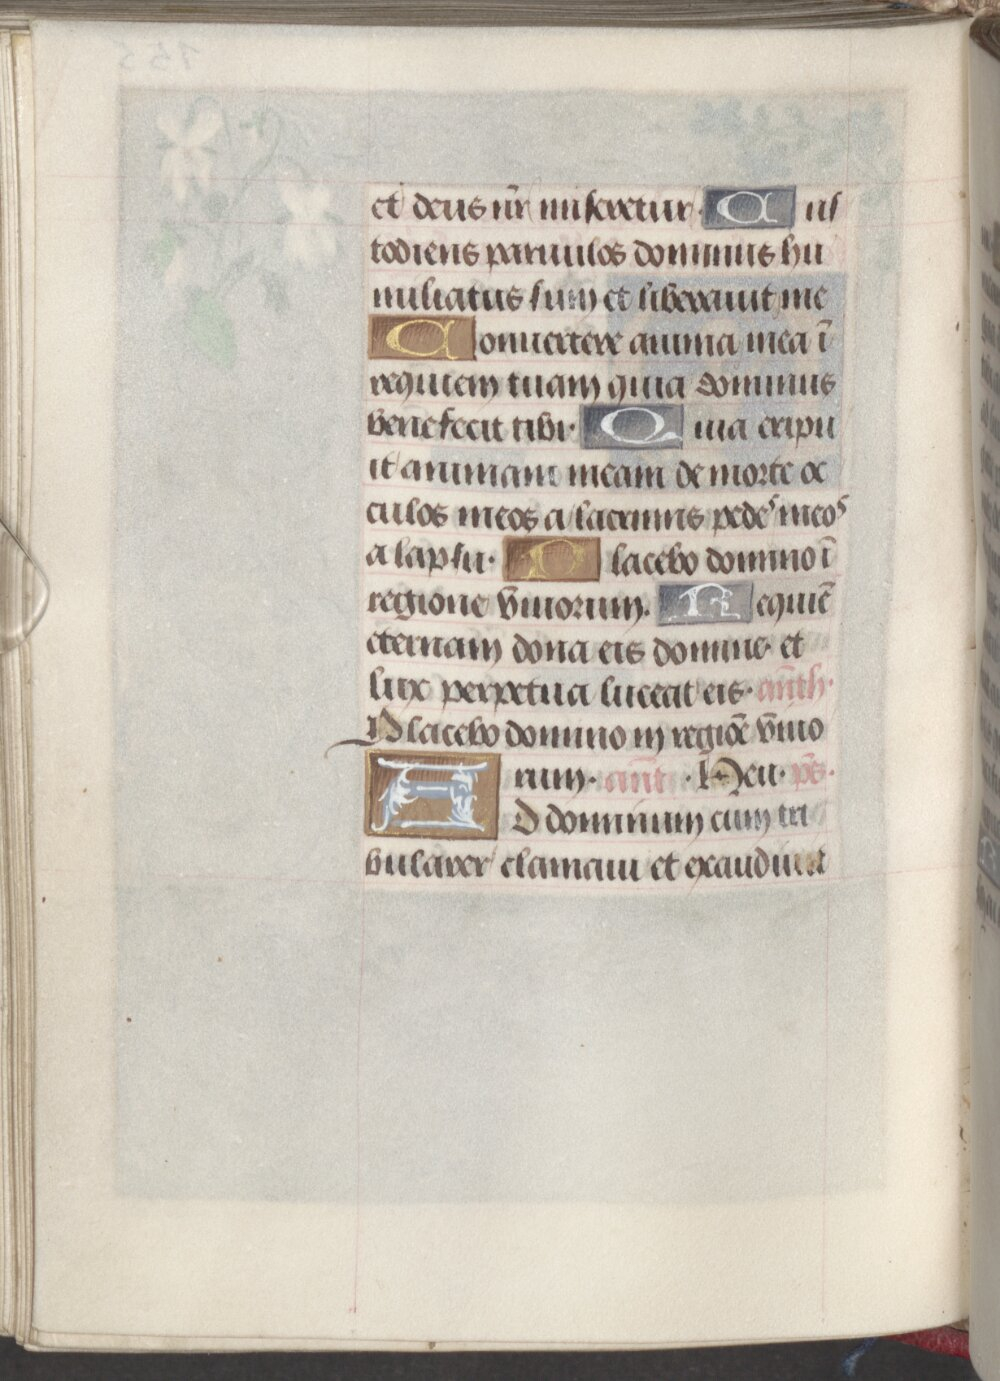 et deus nr̄ miseretur. Cus
todiens paruulos dominus hu
miliatus sum et liberauit me
Conuertere anima mea ī
requiem tuam quia dominus
benefecit tibi. Quia eripu
it animam meam de morte oc
culos meos a lacrimis pedes meos
a lapsu. Placebo domino ī
regione viuorum. Requiē
eternam dona eis domine. et
lux perpetua luceat eis. anth.
Placebo domino in regiōe viuo
rum. ant. Heu. ps.
AD dominum cum tri
bularer clamaui et exaudiuit